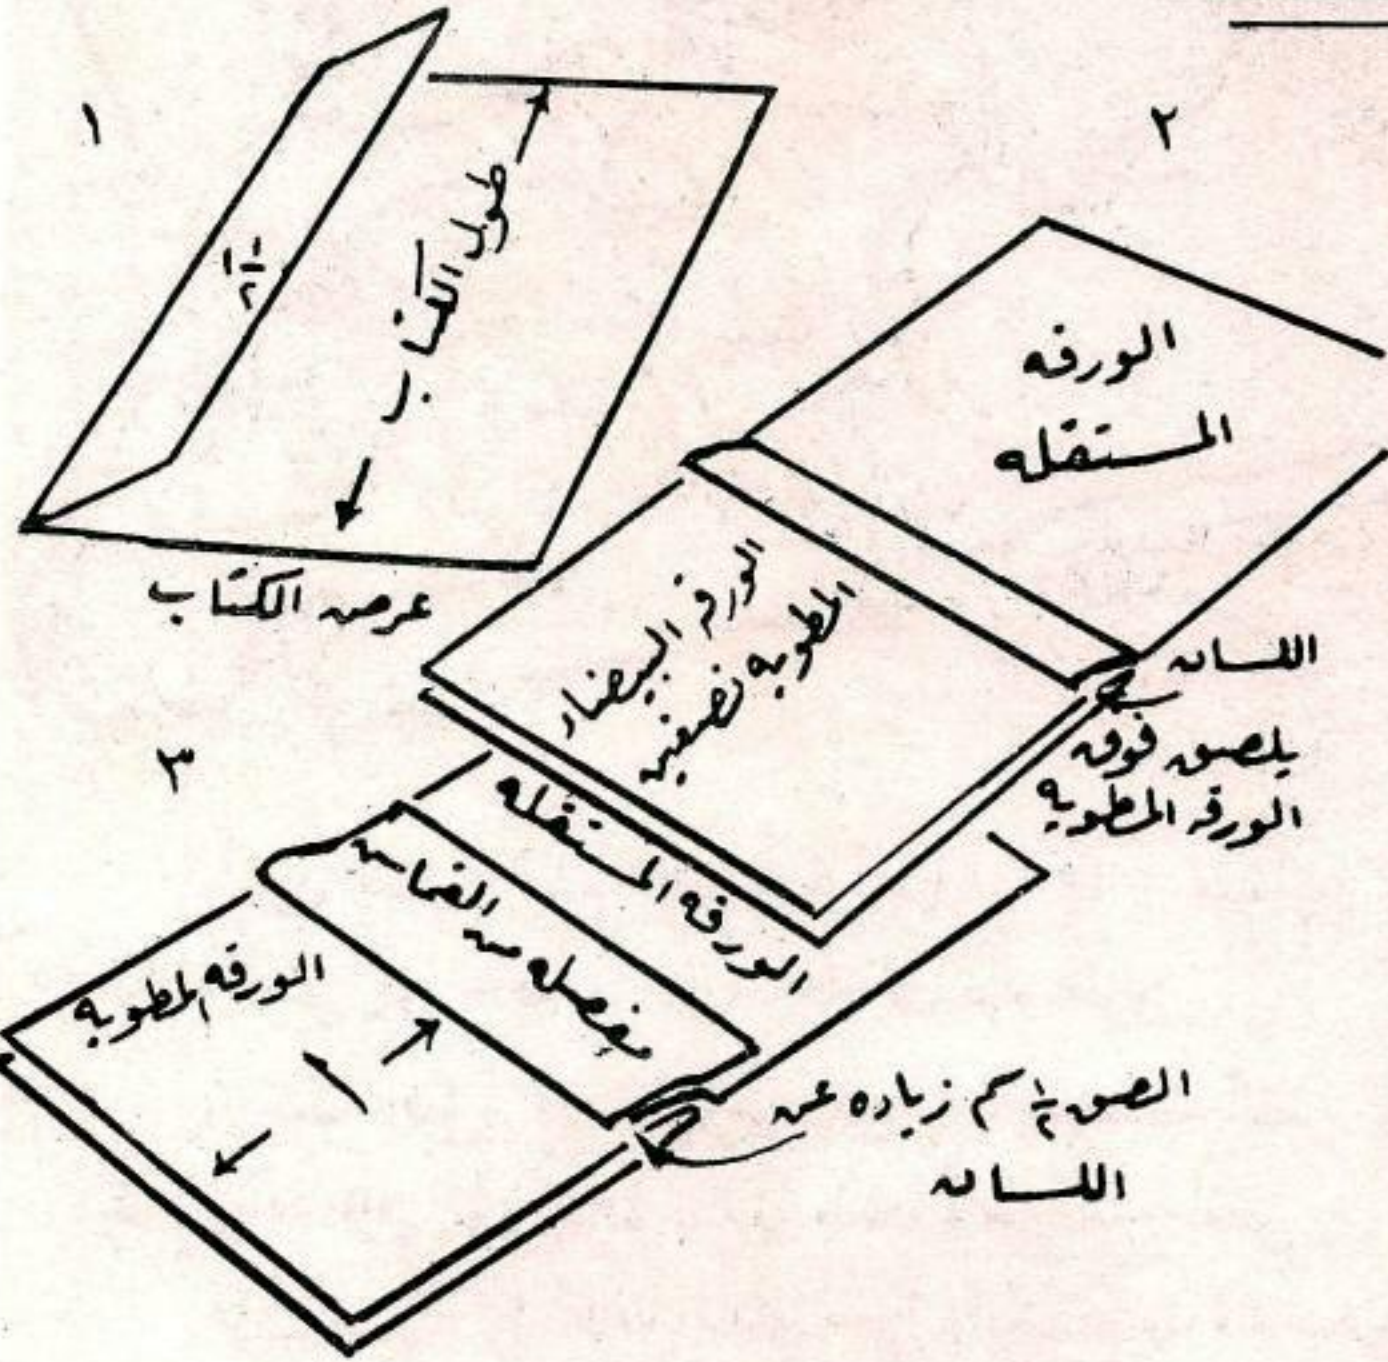 ١
١ ١/٢
طول الكتاب
عرض الكتاب
٢
الورقه
المستقله
الورقه البيضاء
المطويه نصفين
اللسان
يلصق فوق
الورقه المطويه
٣
الورقه المستقله
مفصله من القماش
الورقه المطويه
أ
الصق ١/٢ سم زياده عن
اللسان